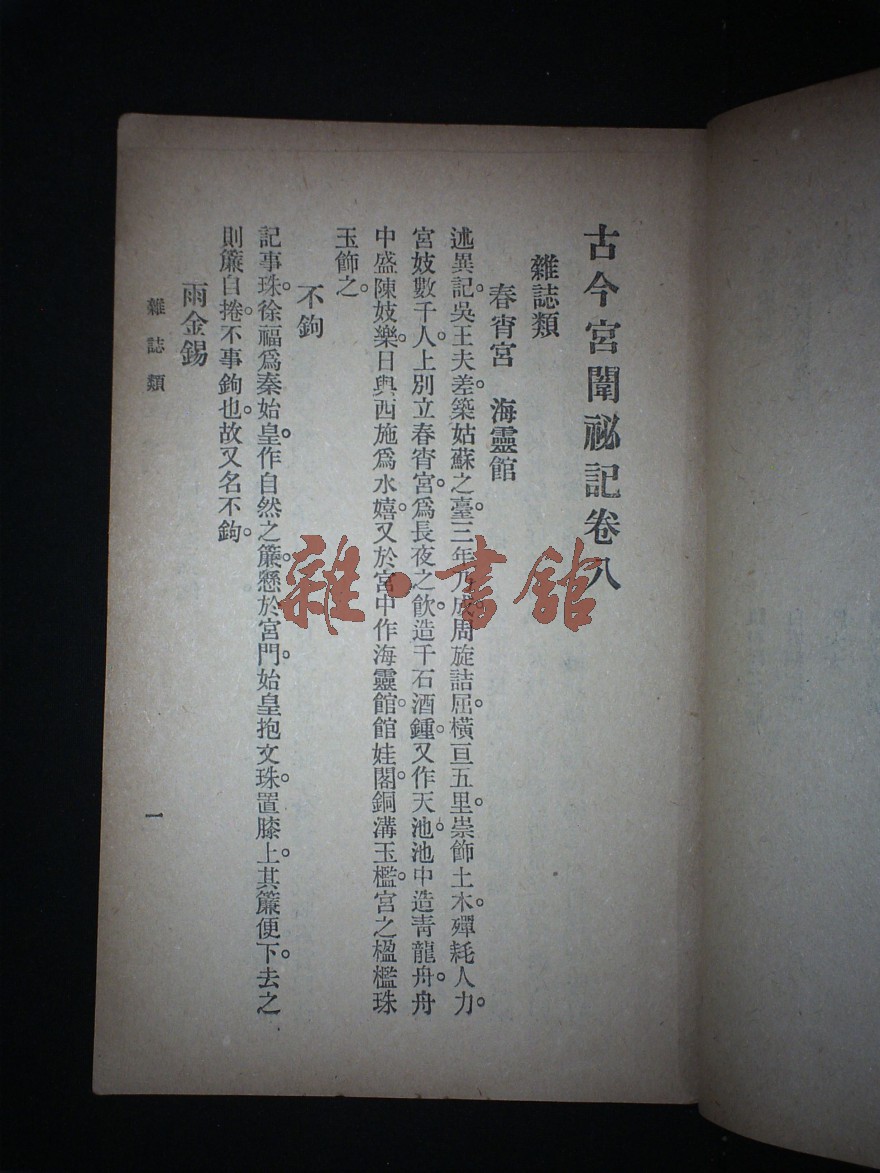 古今宮闈祕記卷八
雜誌類
春宵宮　海靈館
述異記。吳王夫差。築姑蘇之臺。三年乃成。周旋詰屈。橫亘五里。崇飾土木。殫耗人力。
宮妓數千人。上別立春宵宮。爲長夜之飮。造千石酒鍾。又作天池。池中造靑龍舟。舟
中盛陳妓樂。日與西施爲水嬉。又於宮中作海靈館。館娃閣。銅溝玉檻。宮之楹檻。珠
玉飾之。
不鉤
記事珠。徐福爲秦始皇。作自然之簾。懸於宮門。始皇抱文珠。置膝上。其簾便下。去之
則簾自捲。不事鉤也。故又名不鉤。
雨金錫
雜誌類
一
雜·書館